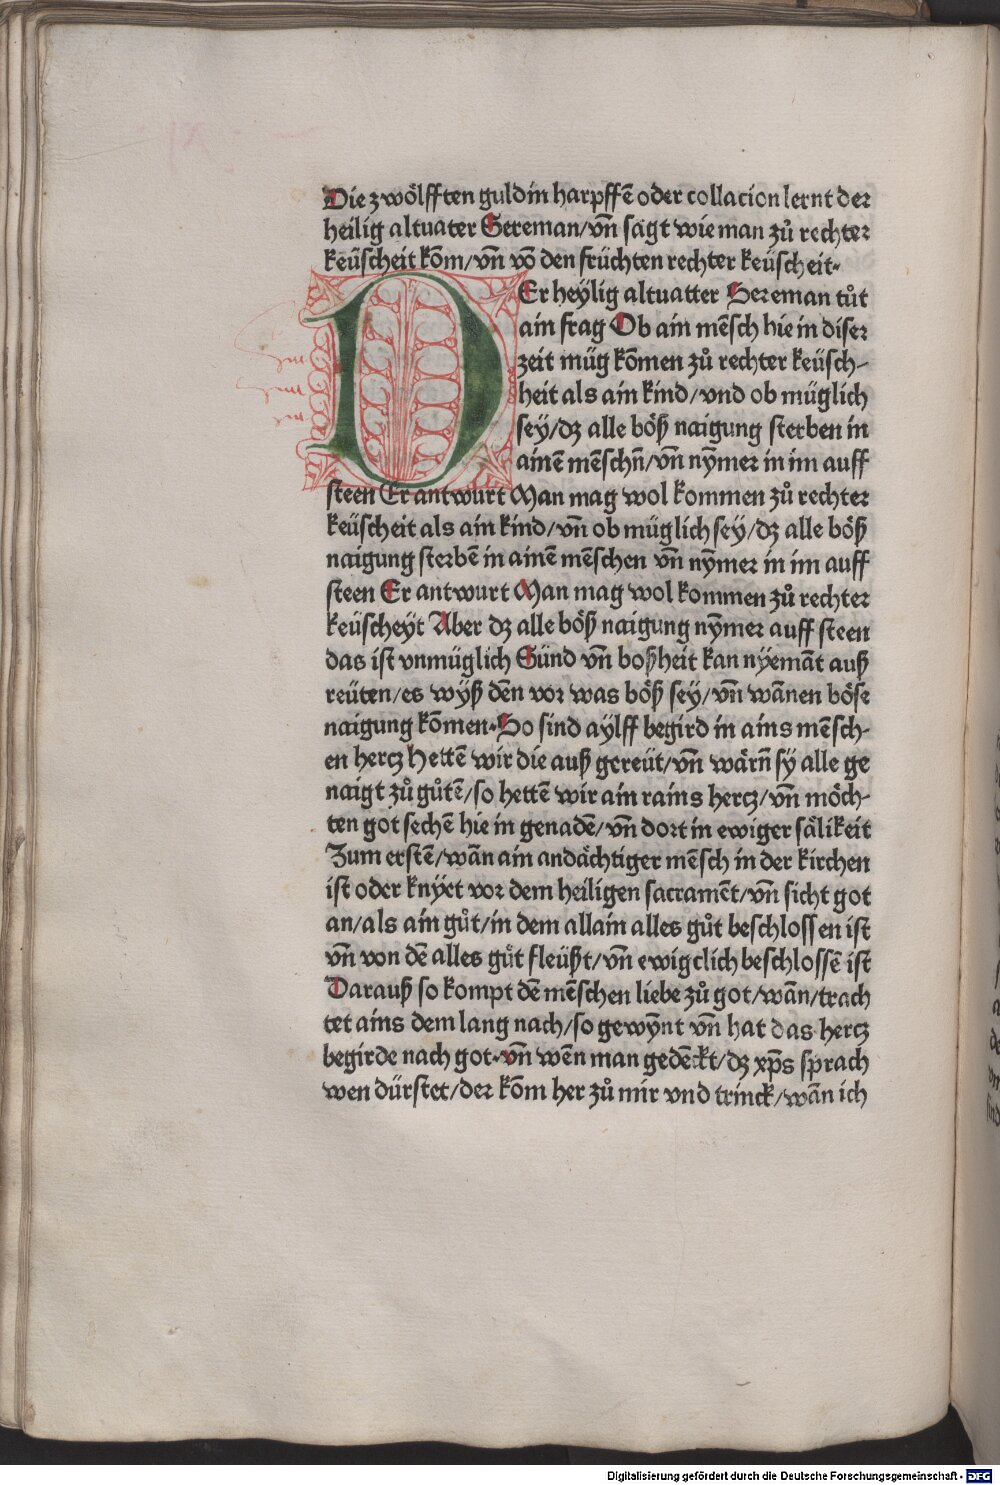 Die zwölfften guldin harpffē oder collacion lernt der
heilig altuater Sereman/vn̄ sagt wie man zů rechter
keüscheit kōm/vn̄ vō den früchten rechter keüscheit·
DEr heylig altuatter Sereman tůt
ain frag Ob ain mēsch hie in diser
zeit müg kōmen zů rechter keüsch-
heit als ain kind/vnd ob müglich
sey/dz alle böß naigung sterben in
ainē mēschn̄/vn̄ nȳmer in im auff
steen Er antwurt Man mag wol kommen zů rechter
keüscheit als ain kind/vn̄ ob müglich sey/dz alle böß
naigung sterbē in ainē mēschen vn̄ nȳmer in im auff
steen Er antwurt Man mag wol kommen zů rechter
keüscheyt Aber dz alle böß naigung nȳmer auff steen
das ist vnmüglich Sünd vn̄ boßheit kan nyemāt auß
reüten/es wyß dēn vor was böß sey/vn̄ wānen böse
naigung kōmen·So sind aylff begird in ains mēsch-
en hercz Hettē wir die auß gereüt/vn̄ wärn̄ sy alle ge
naigt zů gůtē/so hettē wir ain rains hercz/vn̄ möch-
ten got sechē hie in genadē/vn̄ dort in ewiger sälikeit
Zum erstē/wān ain andächtiger mēsch in der kirchen
ist oder knyet vor dem heiligen sacramēt/vn̄ sicht got
an/als ain gůt/in dem allain alles gůt beschlossen ist
vn̄ von dē alles gůt fleüßt/vn̄ ewigclich beschlossē ist
Darauß so kompt dē mēschen liebe zů got/wān/trach
tet ains dem lang nach/so gewȳnt vn̄ hat das hercz
begirde nach got·vn̄ wēn man gedēckt/dz xp̄s sprach
wen dürstet/der kōm her zů mir vnd trinck/wān ich
Digitalisierung gefördert durch die Deutsche Forschungsgemeinschaft - DFG